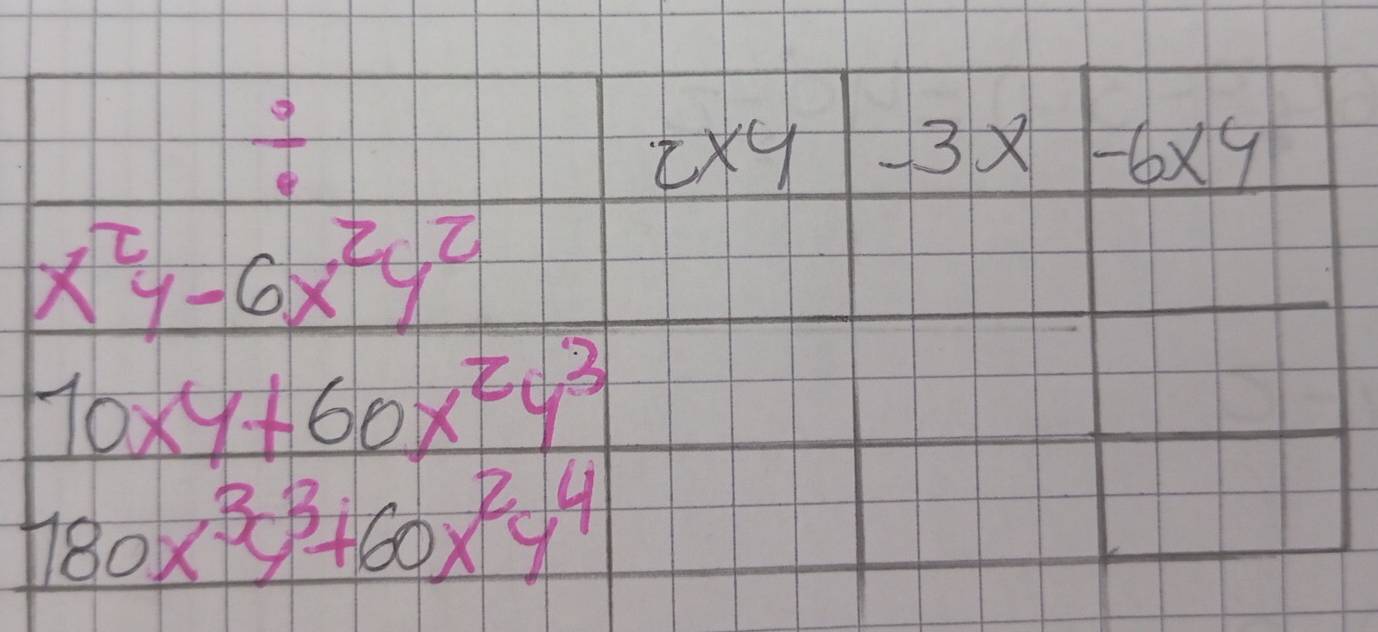 ÷ 2xy -3x -6xy
x²y-6x²y²
10xy+60x²y³
180x³y³+60x²y⁴